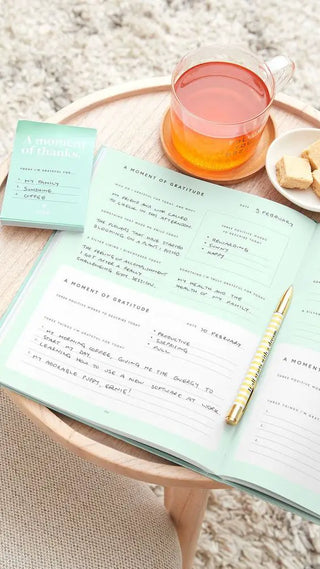 A moment
of thanks.
TODAY I'M GRATEFUL FOR
• MY FAMILY
• SUNSHINE
• COFFEE
A MOMENT OF GRATITUDE
DATE 3 FEBRUARY
WHO I'M GRATEFUL FOR TODAY AND WHY
MY FRIEND WHO CALLED
TO CHECK IN THIS AFTERNOON
SOMETHING THAT MADE ME SMILE TODAY
THE FLOWERS THAT HAVE STARTED
BLOOMING ON A PLANT I POTTED
THE FEELINGS OF ACCOMPLISHMENT
I GOT AFTER A REALLY
CHALLENGING GYM SESSION
THREE POSITIVE WORDS
TO DESCRIBE TODAY
• REWARDING
• SUNNY
• HAPPY
SOMETHING I'M TRULY GRATEFUL FOR TODAY
MY HEALTH AND THE
HEALTH OF MY FAMILY
A MOMENT OF GRATITUDE
DATE 10 FEBRUARY
THREE POSITIVE WORDS TO DESCRIBE TODAY
• PRODUCTIVE
• SURPRISING
• FULL
THREE THINGS I'M GRATEFUL FOR TODAY
• MY MORNING COFFEE, GIVING ME THE ENERGY TO
START MY DAY
• LEARNING HOW TO USE A NEW SOFTWARE AT WORK
• MY ADORABLE PUPPY, ERNIE!
A MOMENT OF GRATITUDE
THREE POSITIVE WORDS
THREE THINGS I'M GRATEFUL
A MOMENT
THREE POSITIVE
THREE THINGS I'M